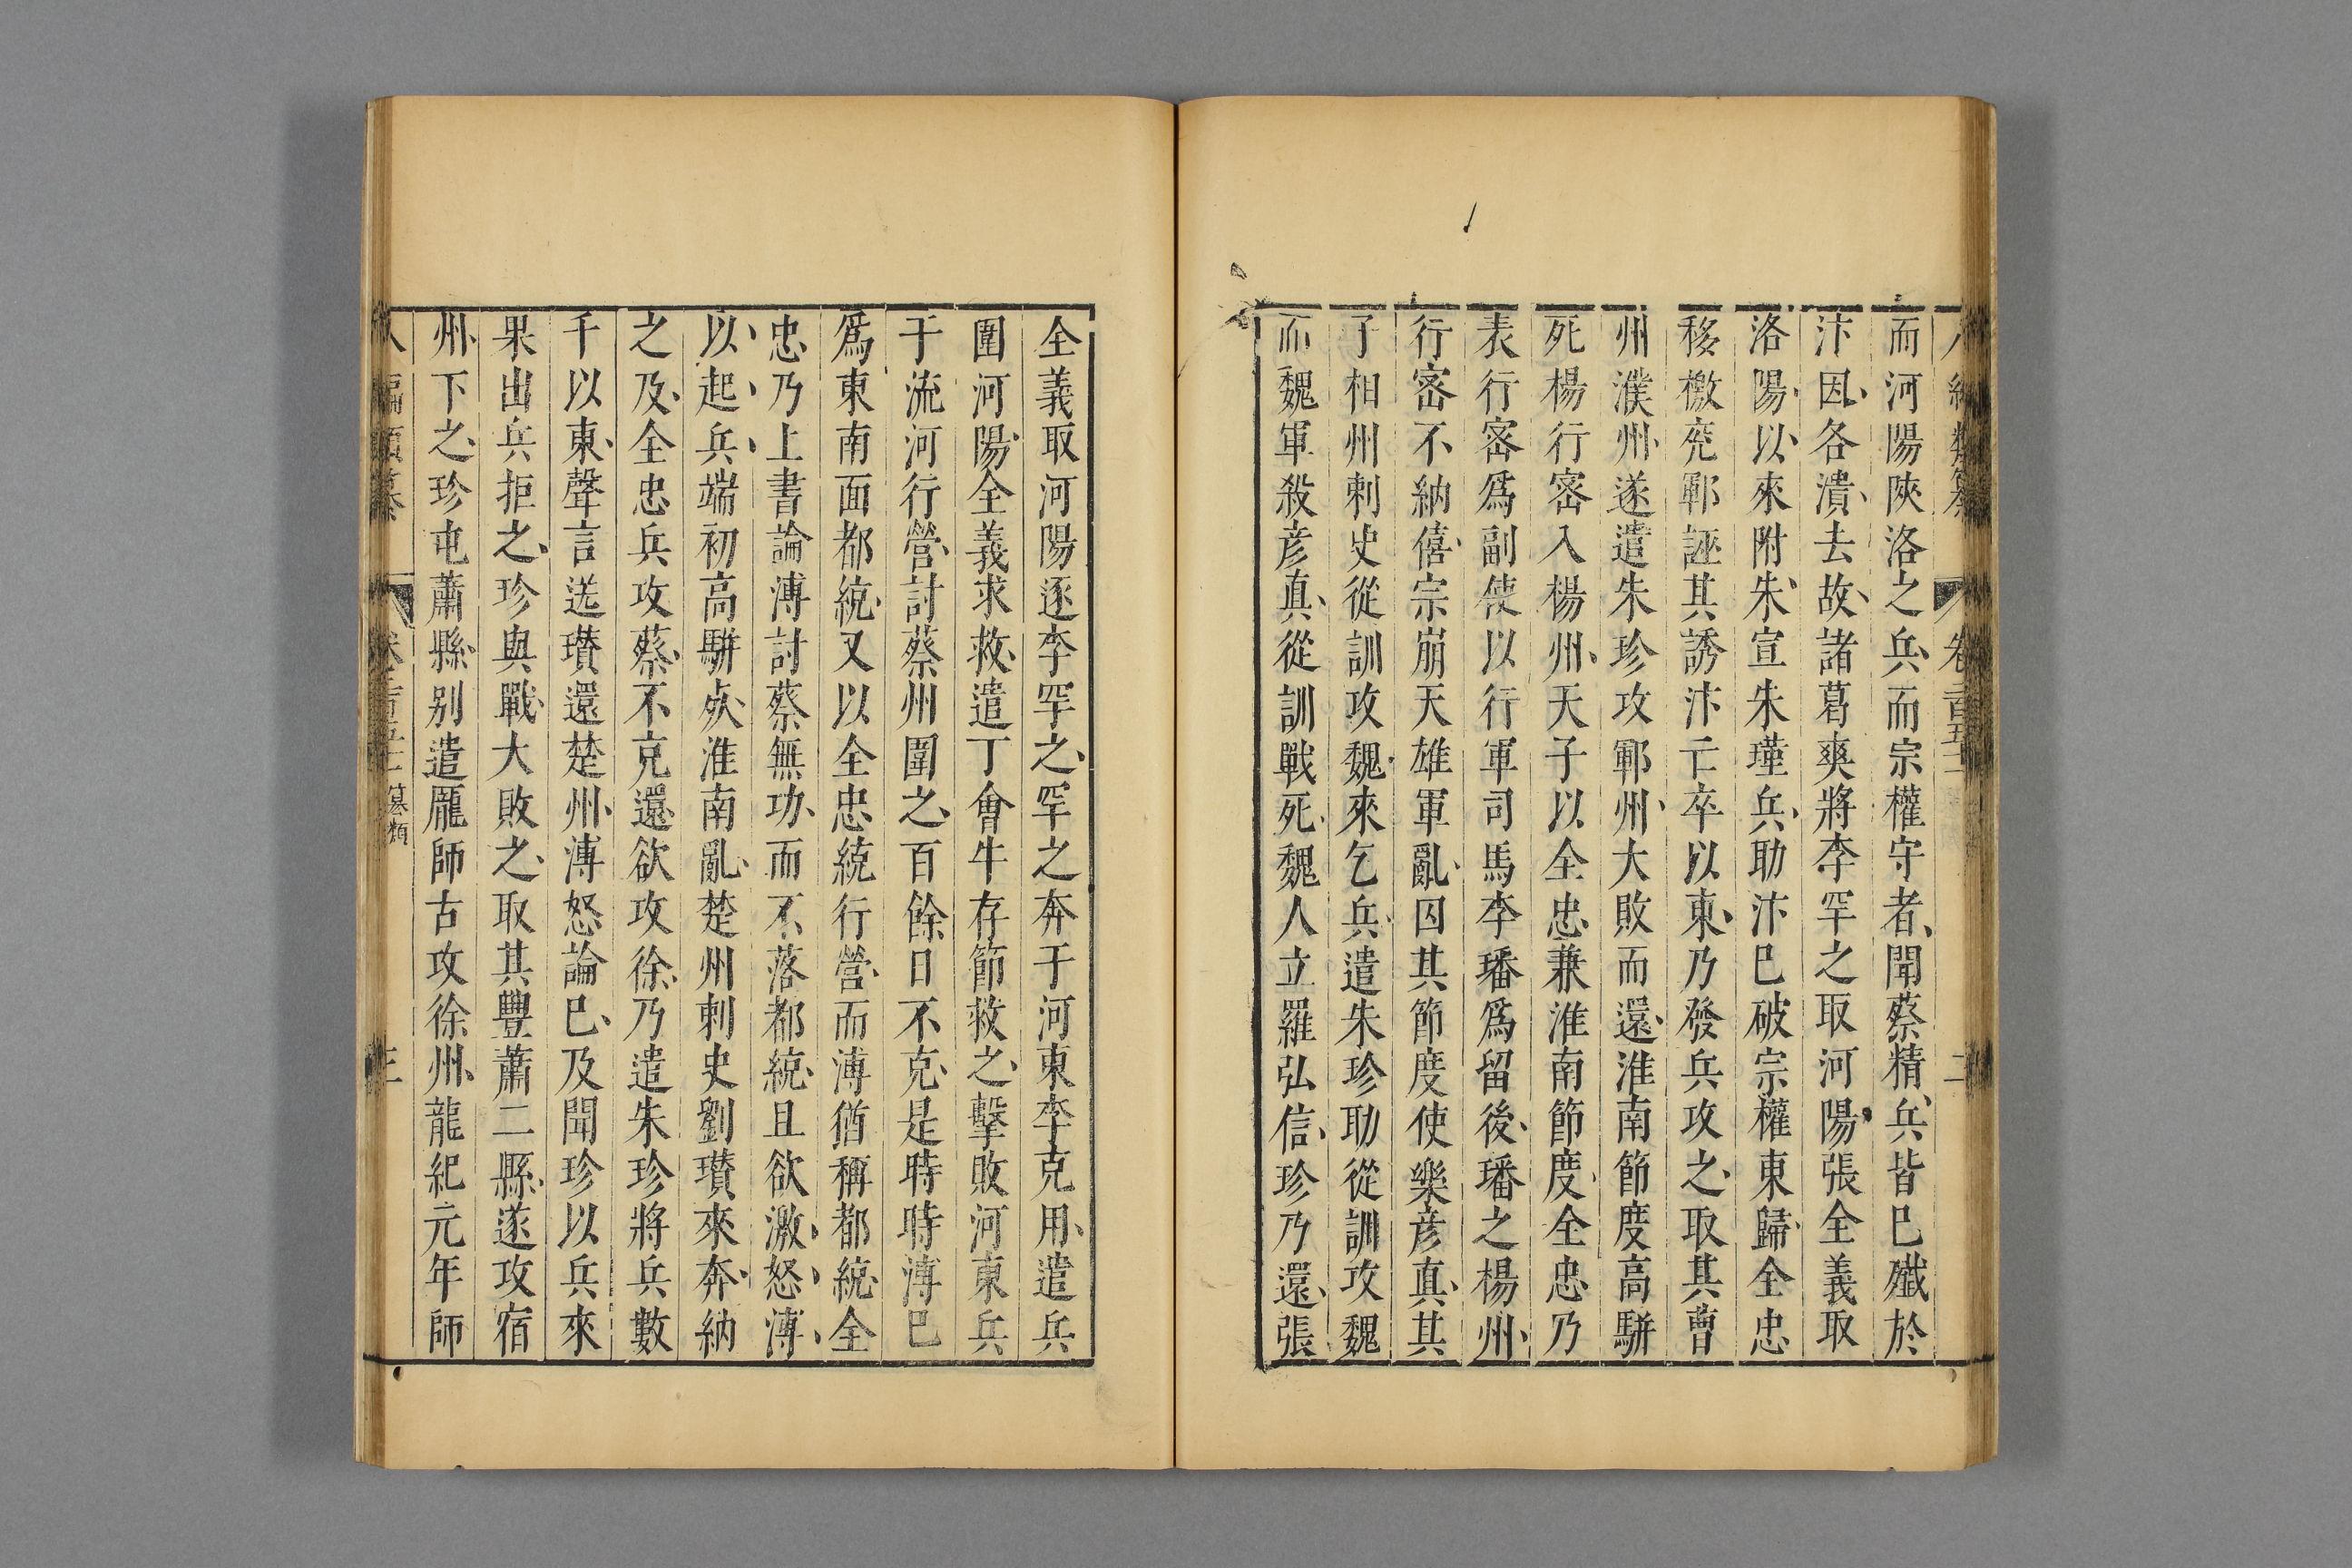 八編類纂 卷一百五十一 二
而河陽陝洛之兵、而宗權守者、聞蔡精、兵皆巳殱於
汴、因、各潰、去故、諸葛爽將李罕之取河陽、張全義取
洛陽、以、來附、朱、宣朱瑾兵、助汴巳破宗權東歸、全忠
移檄兖鄆誣其誘汴亡卒以東、乃發兵攻之、取其曹
州濮州、遂遣朱珍攻鄆州、大敗而還、淮南節度高駢
死楊行宻入楊州、天子以全忠、兼淮南節度、全忠乃
表行宻爲副使以行軍司馬李璠爲留後、璠之楊州、
行宻不納僖、宗崩天雄軍亂、囚其節度使樂彦真、其
子相州刺史從訓攻魏、來乞兵、遣朱珍助從訓攻魏
而魏軍殺彦真、從訓戰死、魏人立羅弘信、珍乃還、張
全義取河陽逐李罕之、罕之奔于河東李克用、遣兵
圍河陽、全義求救、遣丁會牛存節救之、擊敗河東兵
于流河行營、討蔡州圍之、百餘日不克、是時時溥巳
爲東南面都統、又以全忠統行營、而溥猶稱都統、全
忠、乃上書論溥討蔡無功、而不落都統、且欲激、怒、溥、
以、起、兵、端初高駢死、淮南亂、楚州刺史劉瓚來奔、納
之及、全忠兵攻蔡、不克還、欲攻徐、乃遣朱珍將兵數
千以東、聲言送瓚還楚州、溥怒論巳、及聞珍以兵來
果出兵拒之、珍與戰、大敗之、取其豐蕭二縣、遂攻宿
州、下之、珍屯蕭縣、别遣龐師古攻徐州、龍紀元年師
八編類纂 卷一百五十一 三